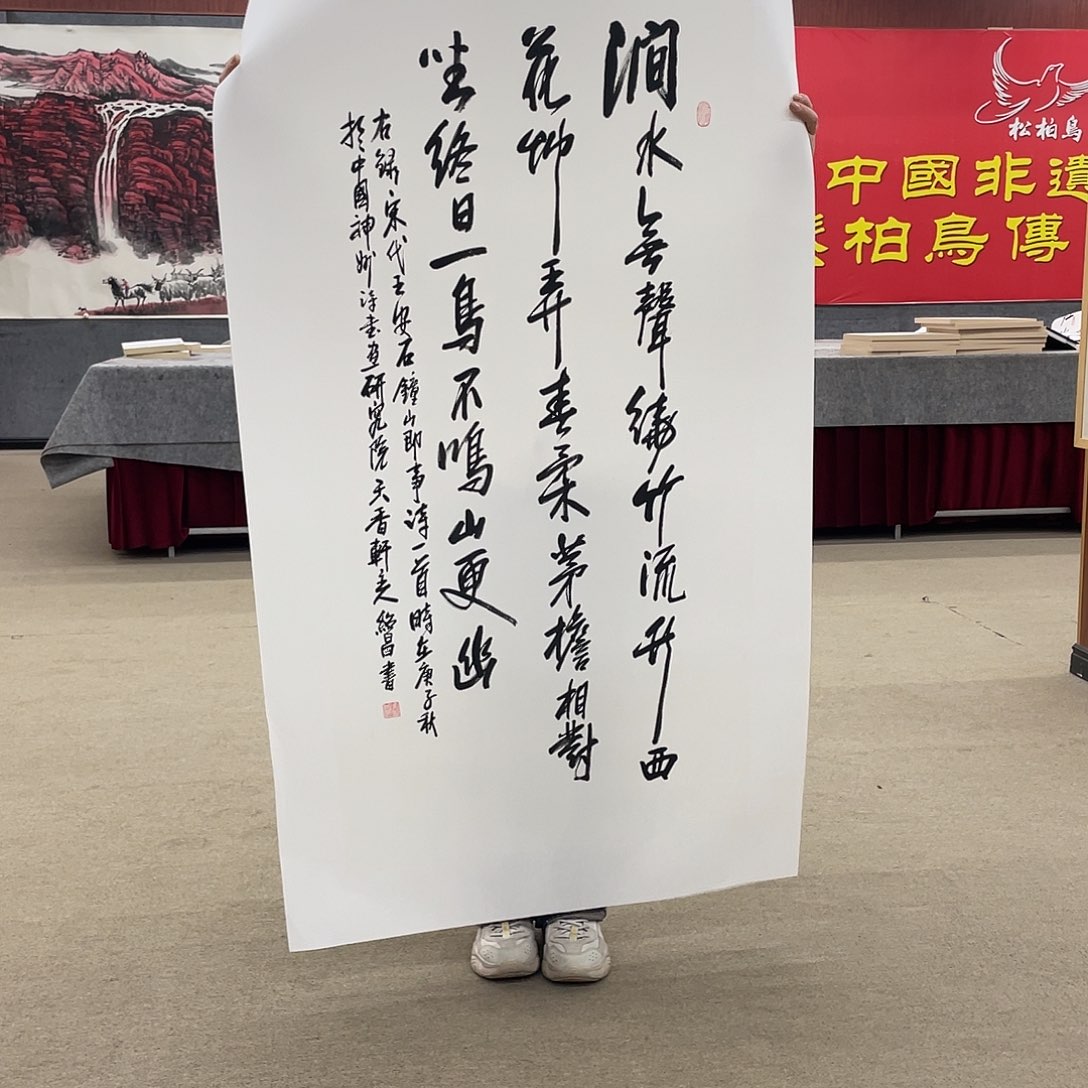 澗水無聲繞竹流竹西
花艸弄春柔茅檐相對
坐終日一鳥不鳴山更幽
右録宋代王安石鐘山即事詩一首時在庚子秋
於中國神詩書畫研究院天香軒昌書
松柏鳥
中國非遺
柏鳥傳